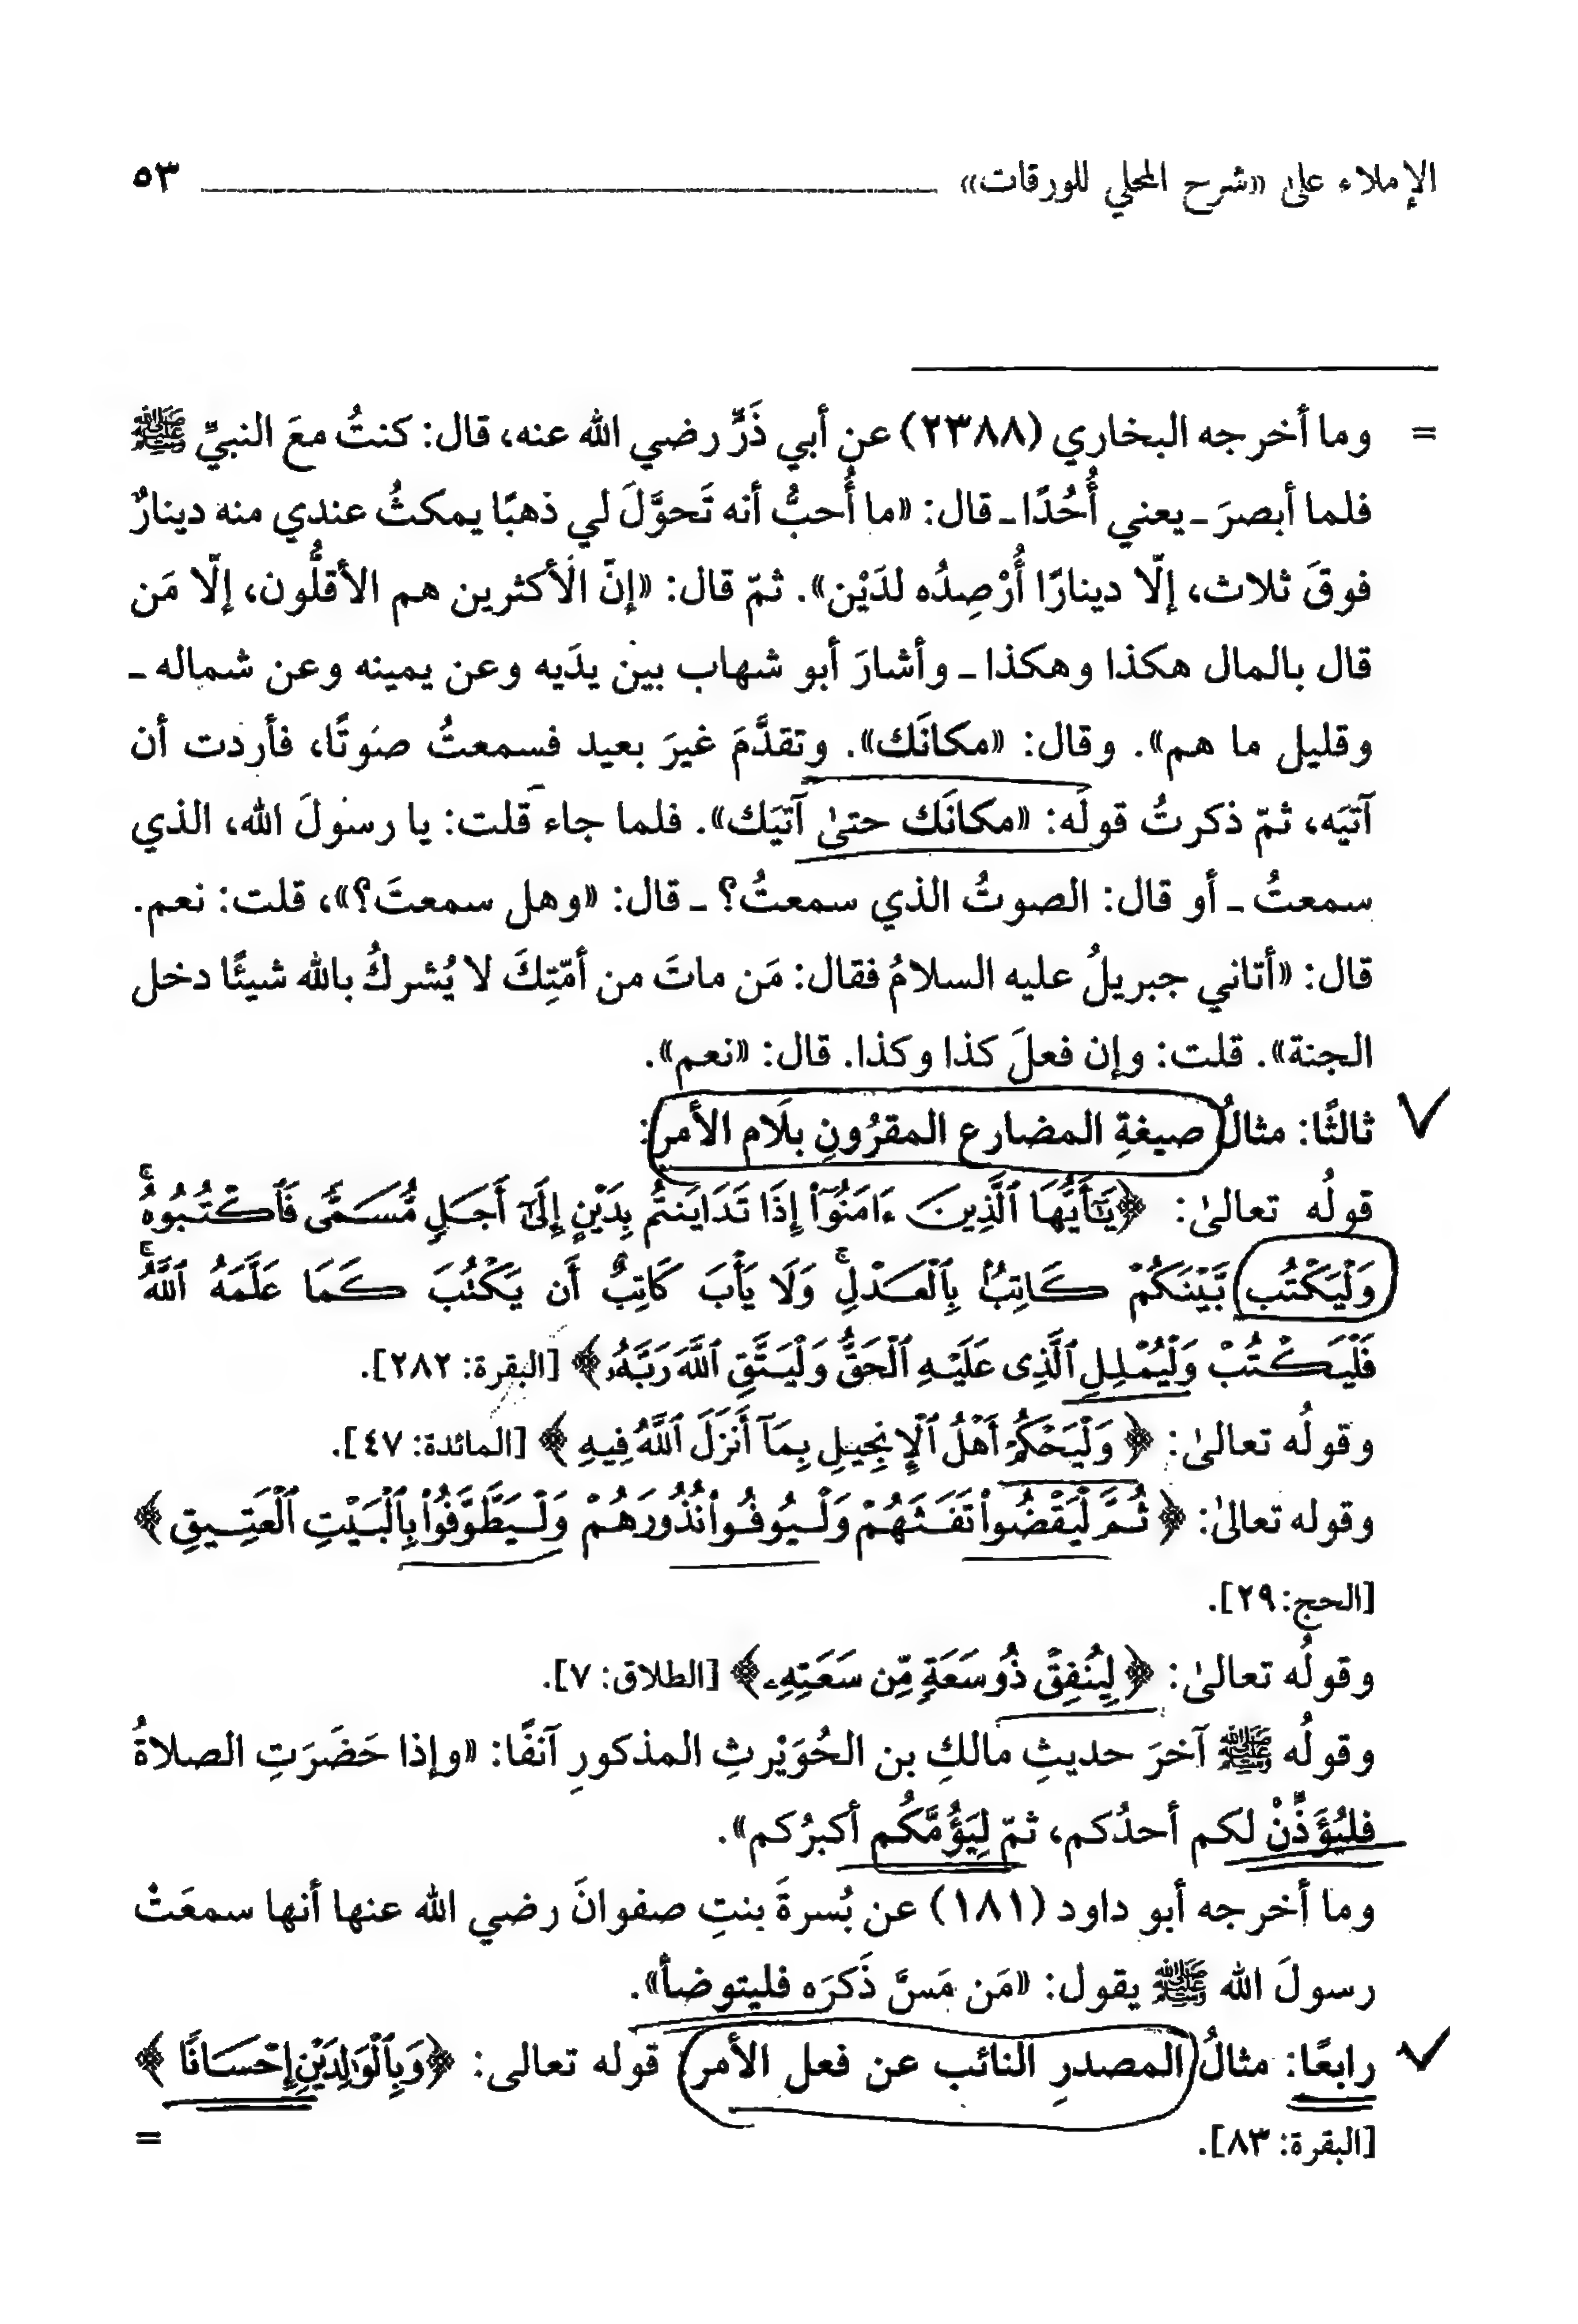 الإملاء على «شرح المحلي للورقات» ٥٣
= وما أخرجه البخاري (٢٣٨٨) عن أبي ذَرٍّ رضي الله عنه، قال: كنتُ معَ النبيِّ ﷺ
فلما أبصرَ ـ يعني أُحُدًا ـ قال: «ما أُحبُّ أنه تَحوَّلَ لي ذهبًا يمكثُ عندي منه دينارٌ
فوقَ ثلاث، إلّا دينارًا أُرْصِدُه لدَيْن». ثمّ قال: «إنّ الأكثرين هم الأقلُّون، إلّا مَن
قال بالمال هكذا وهكذا ـ وأشارَ أبو شهاب بين يدَيه وعن يمينه وعن شماله ـ
وقليل ما هم». وقال: «مكانَك». وتقدَّمَ غيرَ بعيد فسمعتُ صوتًا، فأردت أن
آتيَه، ثمّ ذكرتُ قولَه: «مكانَك حتىٰ آتيَك». فلما جاء قلت: يا رسولَ الله، الذي
سمعتُ ـ أو قال: الصوتُ الذي سمعتُ؟ ـ قال: «وهل سمعتَ؟»، قلت: نعم.
قال: «أتاني جبريلُ عليه السلامُ فقال: مَن ماتَ من أمّتِكَ لا يُشركُ بالله شيئًا دخل
الجنة». قلت: وإن فعلَ كذا وكذا. قال: «نعم».
ثالثًا: مثالُ صيغةِ المضارع المقرُونِ بلَام الأمر:
قولُه تعالىٰ: ﴿يَٰٓأَيُّهَا ٱلَّذِينَ ءَامَنُوٓا۟ إِذَا تَدَايَنتُم بِدَيْنٍ إِلَىٰٓ أَجَلٍ مُّسَمًّى فَٱكْتُبُوهُ ۚ
وَلْيَكْتُب بَّيْنَكُمْ كَاتِبٌۢ بِٱلْعَدْلِ ۚ وَلَا يَأْبَ كَاتِبٌ أَن يَكْتُبَ كَمَا عَلَّمَهُ ٱللَّهُ ۚ
فَلْيَكْتُبْ وَلْيُمْلِلِ ٱلَّذِى عَلَيْهِ ٱلْحَقُّ وَلْيَتَّقِ ٱللَّهَ رَبَّهُۥ﴾ [البقرة: ٢٨٢].
وقولُه تعالىٰ: ﴿وَلْيَحْكُمْ أَهْلُ ٱلْإِنجِيلِ بِمَآ أَنزَلَ ٱللَّهُ فِيهِ﴾ [المائدة: ٤٧].
وقوله تعالىٰ: ﴿ثُمَّ لْيَقْضُوا۟ تَفَثَهُمْ وَلْيُوفُوا۟ نُذُورَهُمْ وَلْيَطَّوَّفُوا۟ بِٱلْبَيْتِ ٱلْعَتِيقِ﴾
[الحج: ٢٩].
وقولُه تعالىٰ: ﴿لِيُنفِقْ ذُو سَعَةٍ مِّن سَعَتِهِۦ﴾ [الطلاق: ٧].
وقولُه ﷺ آخرَ حديثِ مالكِ بن الحُوَيْرثِ المذكورِ آنفًا: «وإذا حَضَرَتِ الصلاةُ
فليُؤَذِّنْ لكم أحدُكم، ثمّ لِيَؤُمَّكُم أكبرُكم».
وما أخرجه أبو داود (١٨١) عن بُسرةَ بنتِ صفوانَ رضي الله عنها أنها سمعَتْ
رسولَ الله ﷺ يقول: «مَن مَسَّ ذَكرَه فليتوضأ».
رابعًا: مثالُ المصدرِ النائب عن فعل الأمر: قوله تعالى: ﴿وَبِٱلْوَٰلِدَيْنِ إِحْسَانًا﴾
[البقرة: ٨٣]. =